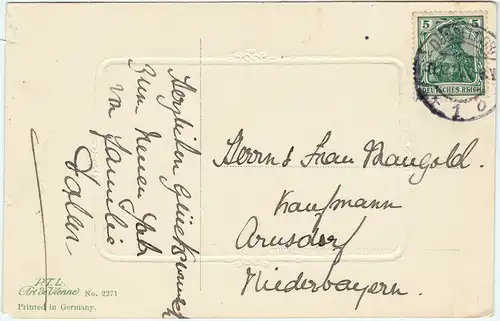 Herzlichen Glückwunsch
zum neuen Jahr
von Familie
Herrn & Frau Mangold.
Kaufmann
Arnsdorf
Niederbayern.
5 5
DEUTSCHES REICH
1 b
P.T.L.
Art de Vienne No. 2271
Printed in Germany.